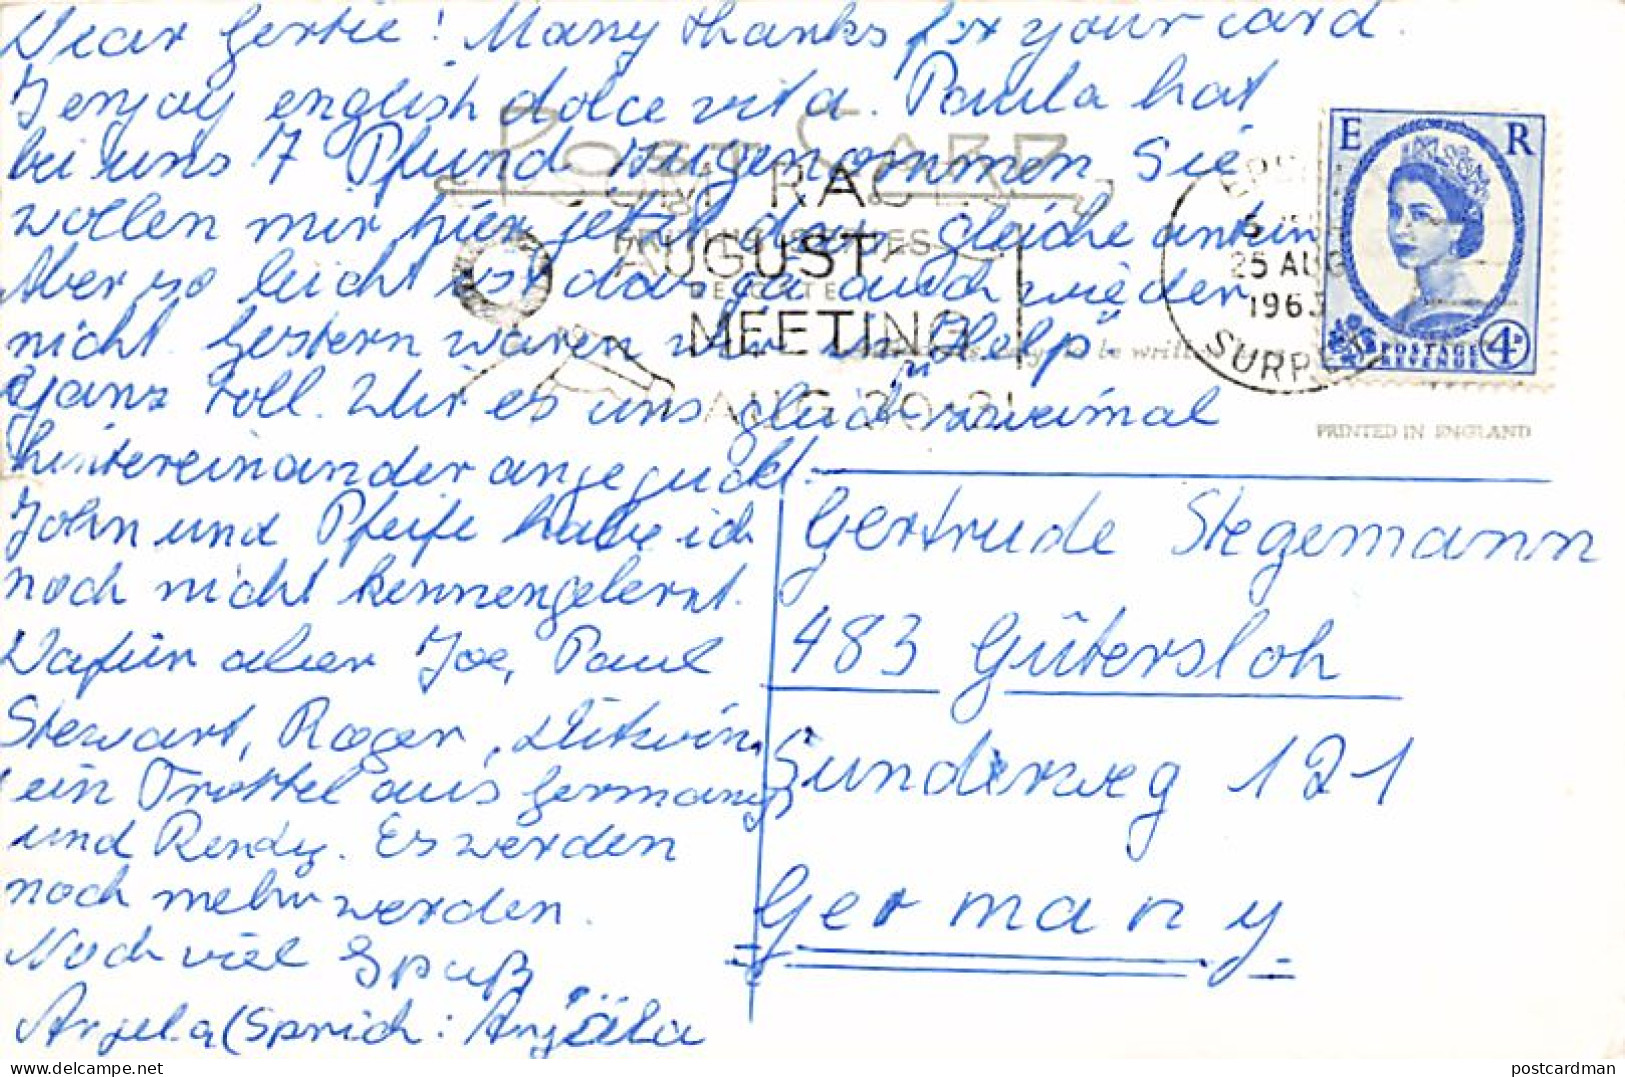 Dear Gertie! Many thanks for your card.
I enjoy english dolce vita. Paula hat
bei uns 7 Pfund zugenommen. Sie
wollen mir hier jetzt das gleiche antun
Aber so leicht ist das ja auch wieder
nicht. Gestern waren wir in "Help".
Ganz toll. Wir es uns gleich zweimal
hintereinander angeguckt.
John und Pfeife habe ich
noch nicht kennengelernt.
Dafür aber Joe, Paul
Stewart, Roger,
ein Trottel aus Germany,
und Rendy. Es werden
noch mehr werden.
Noch viel Spaß
Angela (Sprich: Anjöla
POST CARD
RAC
AUGUST
MEETING
AUG
EPSOM
25 AUG
196
SURREY
E R
POSTAGE
REVENUE
4D
PRINTED IN ENGLAND
Gertrude Stegemann
483 Gütersloh
Sunderweg 121
Germany
postcardman